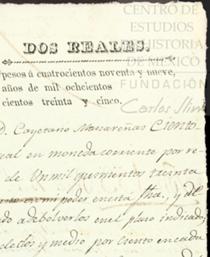 CENTRO DE
ESTUDIOS
DE HISTORIA
DE MÉXICO
FUNDACIÓN
Carlos Slim
DOS REALES.
pesos á cuatrocientos noventa y nueve,
años de mil ochocientos
cientos treinta y cinco.
D. Cayetano Mascareñas Ciento
en moneda corriente por
de Un mil quinientos treinta
mi poder en esta fha, y de
devolverlos en el plazo indicado,
y medio por ciento en cada